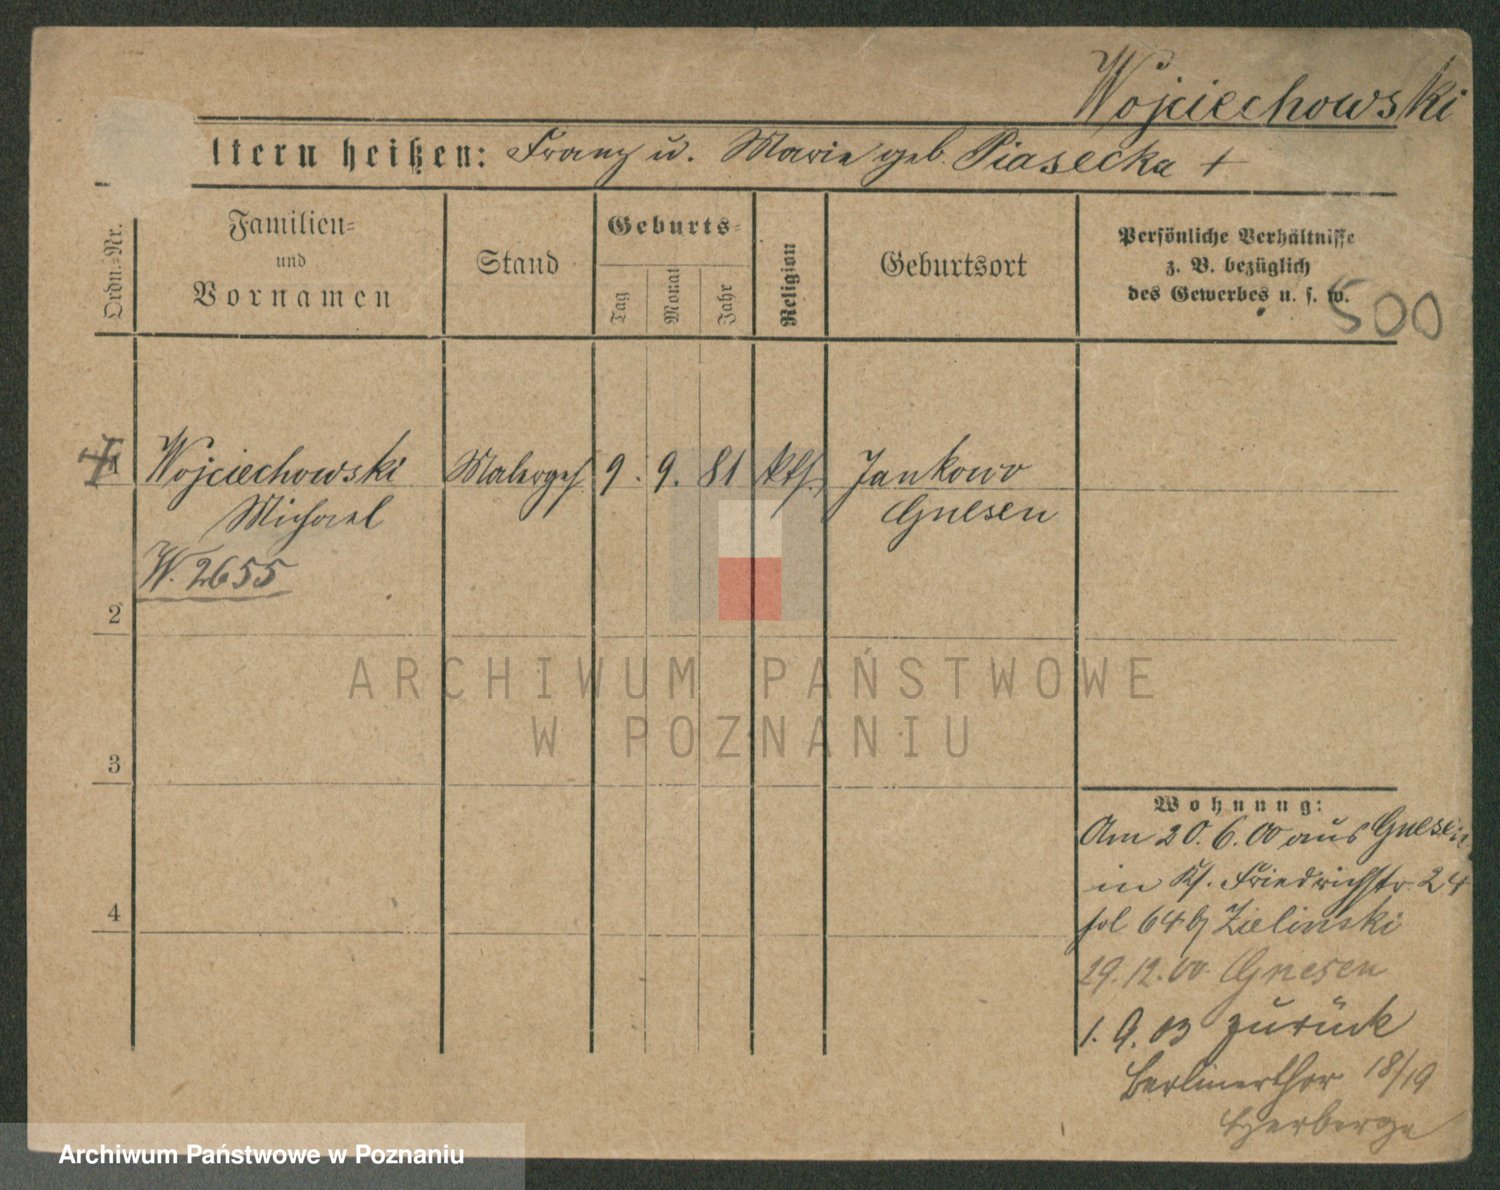 Wojciechowski
ltern heißen: Franz u. Marie geb. Piasecka +
Ordn.=Nr.
Familien=
und
Vornamen
Stand
Geburts=
Tag
Monat
Jahr
Religion
Geburtsort
Persönliche Verhältnisse
z. B. bezüglich
des Gewerbes u. s. w.
500
1 Wojciechowski Malergeh 9. 9. 81 kth. Jankowo
Michael Gnesen
W. 2655
2
3
4
Wohnung:
Am 20. 6. 00 aus Gnesen
in Kf. Friedrichstr. 24
fol 64 bj Zielinski
29. 12. 00. Gnesen
1. 9. 03 zurück
Berlinerthor 18/19
Herberge
ARCHIWUM PAŃSTWOWE
W POZNANIU
Archiwum Państwowe w Poznaniu